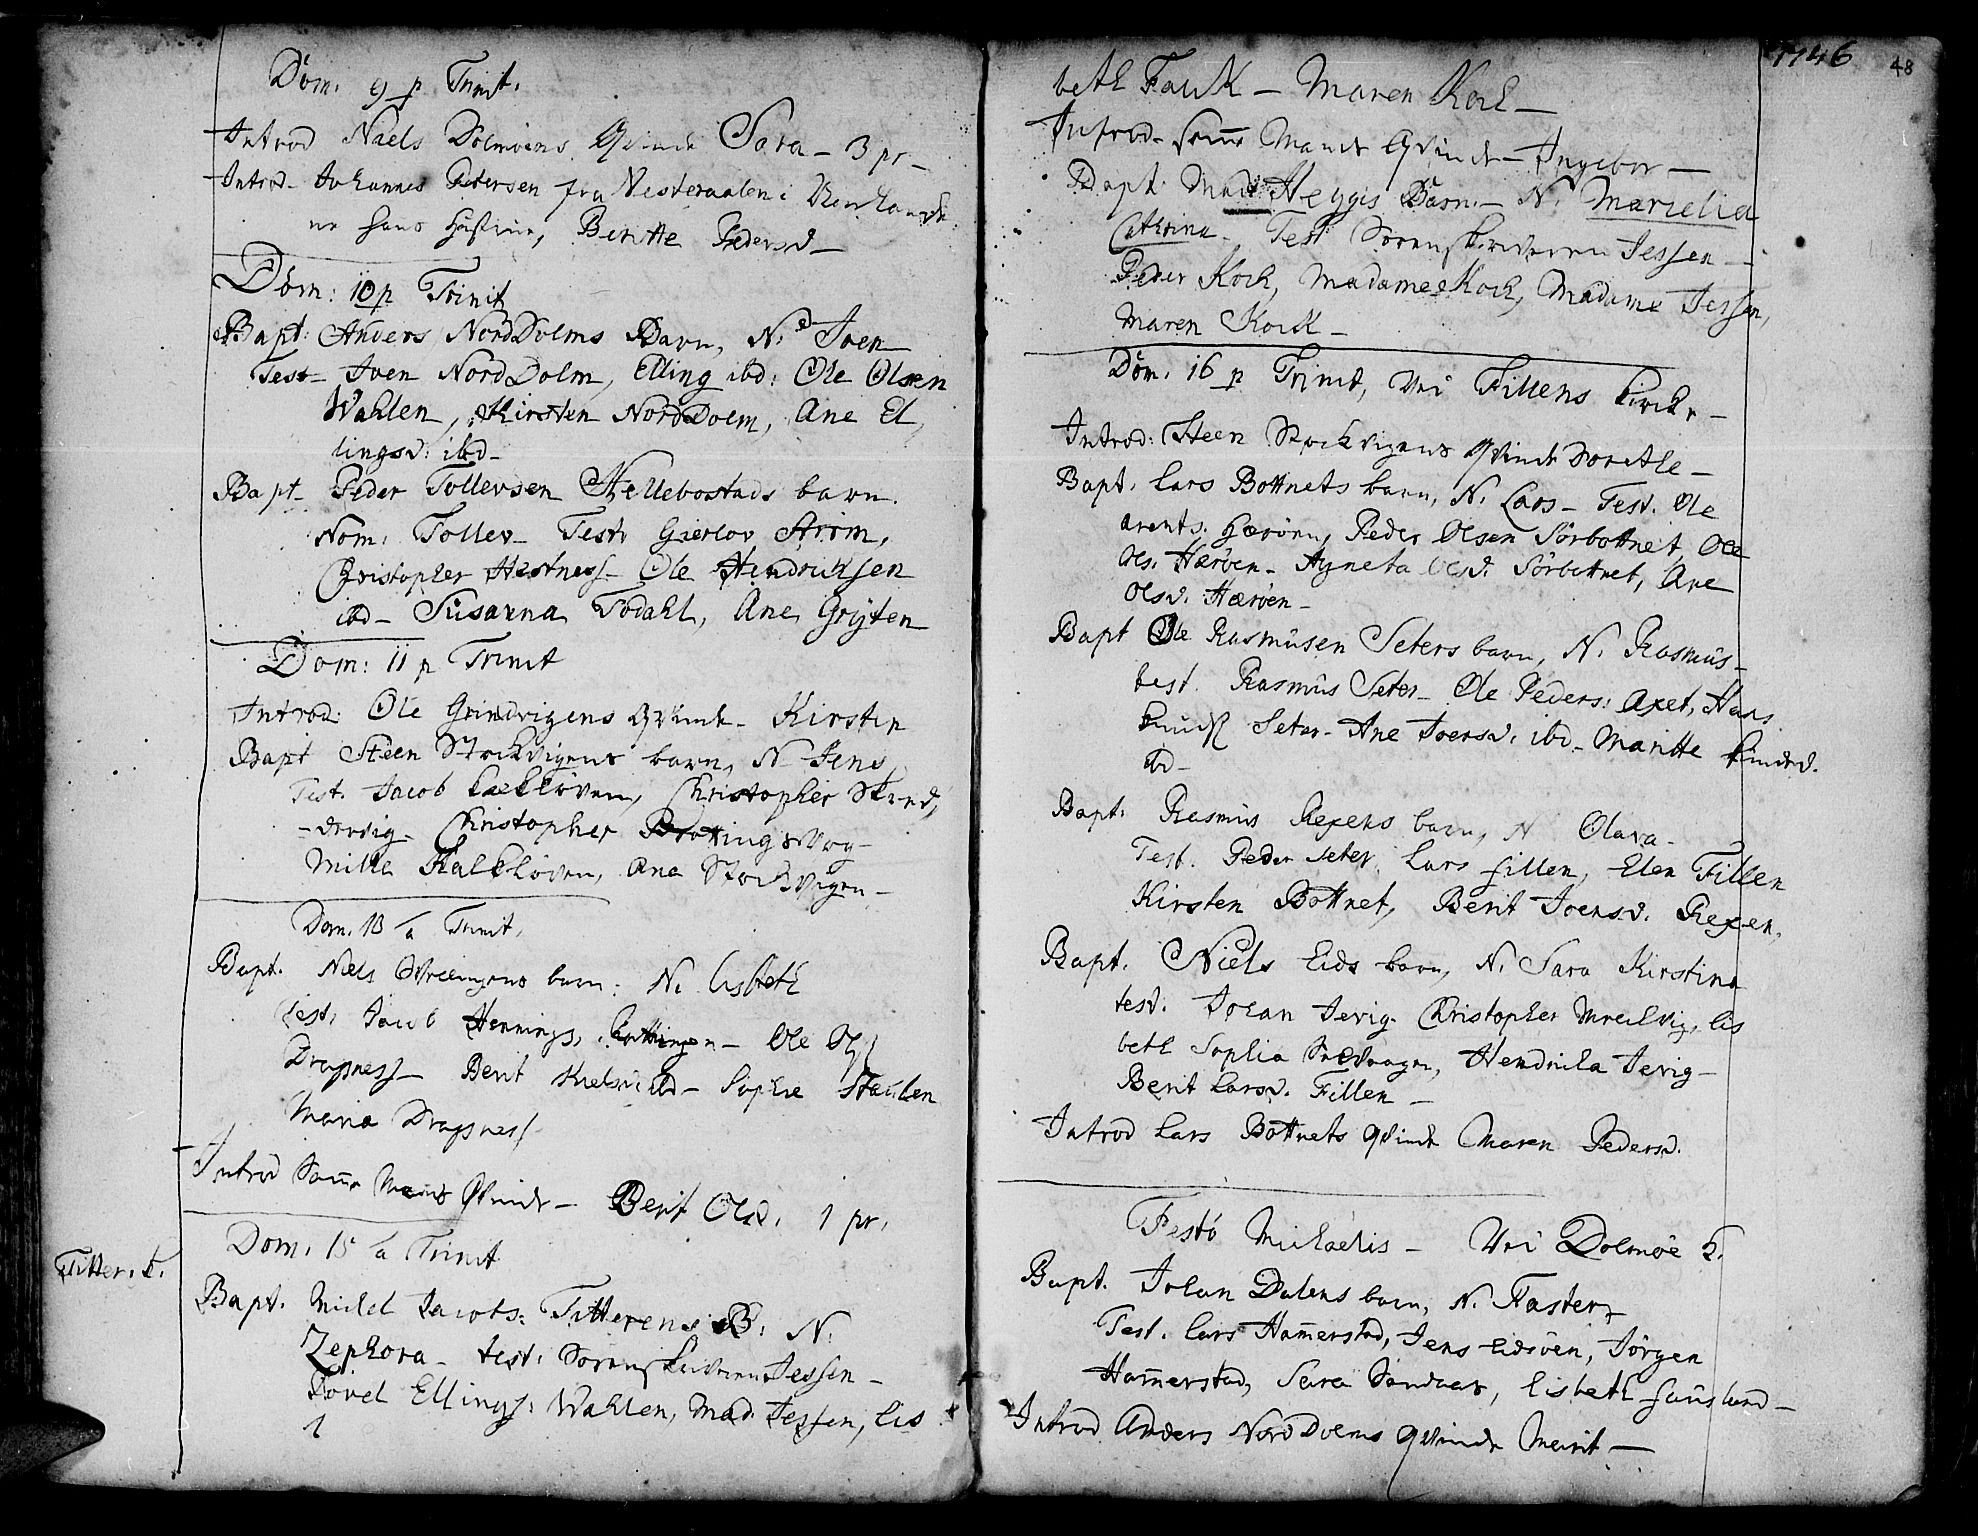 Dom. 9 p Trinit.
Introd Niels Dolmøens Qvinde Sara - 3 pr -
Introd - Johannes Pedersen fra Vesteraalen i
hans Hustrue, Beritte Pedersd -
Dom: 10 p Trinit
Bapt: Anders NordDolms Barn, N. Iven
Test - Iven NordDolm, Elling ibd: Ole Olsen
Wahlen, Kirsten NordDolm, Ane El,
lingsd: ibd -
Bapt - Peder Tollevsen Hellebostads barn.
Nom. Tollev - Test. Gierlov Strøm,
Christopher Hestness - Ole Hendrichsen
ibd - Susanna Todahl, Ane Grÿten
Dom: 11 p Trinit
Introd: Ole Grindvigens Qvinde - Kirsten
Bapt Steen Stockvigens barn, N Jens,
Test. Jacob Kalkløven, Christopher
Christopher
Mille Kalkløven, Ane Stockvigen -
Dom. 13 a Trinit.
Bapt. Niels barn: N. Lisbeth
test. Jacob Hennings. - Ole Ols
Dragsness - Berit ibd - Sophie Stahlen
Maria Dragsness
Introd Samme Mands Qvinde - Berit Olsd. 1 pr.
Dom. 15 a Trinit
Titter. b.
Bapt. Michel Jacobs: Titterens B: N.
Zephora - test: Sorenskriveren Jessen -
Povel Ellings: Wahlen, Mad. Jessen, Lis
1746
48
beth Fauk - Maren Koch -
Introd - Samme Mands Qvinde - Ingebor -
Bapt. Mads Heggis Barn - N. Marielia
Cathrina - Test Sorenskriveren Jessen -
Peder Koch, Madame Koch, Madame Jessen,
Maren Kock -
Dom. 16 p Trinit, Ved Fillens Kircke -
Introd: Steen Stockvigens Qvinde Dorethe -
Bapt. Lars Bottnets barn, N. Lars - Test. Ole
Arents. Hærøen, Peder Olsen Sørbottnet, Ole
Ols. Hærøen - Agneta Olsd. Sørbottnet, Ane
Olsd. Hærøen -
Bapt Ole Rasmusen Seters barn, N. Rasmus -
test. Rasmus Seter - Ole Peders: Axet, Hans
Knuds Seter - Ane Joersd. ibd - Maritte Knudsd.
ibd -
Bapt. Rasmus Rexens barn, N Olava -
Test. Peder Seter, Lars Fillen, Elen Fillen
Kirsten Bottnet, Berit Joensd. Rexen,
Bapt. Niels Eids barn, N. Sara Kirstina
test. Johan Jevig - Christopher Lis
beth Sophia Hendricha Jevig -
Berit Larsd. Fillen -
Introd Lars Bottnets Qvinde Maren Pedersd.
Festo Michaelis - Ved Dolmøe K.
Bapt. Johan Dalens barn, N. Faster
Test. Lars Ham̄erstad, Jens Eidsøen, Jörgen
Ham̄erstad, Sara Sandaas, Lisbeth
Introd Anders NordDolms Qvinde Marit -